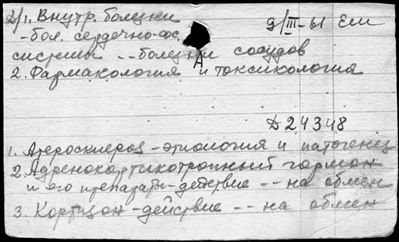 Д/1. Внутр. болезни 9/III-61 Еш
- бол. сердечно-сос.
системы -- болезни сосудов
2. Фармакология и токсикология
Д24348
1. Атеросклероз - этиология и патогенез
2. Адренокортикотропный гормон
и его препараты - действие -- на обмен
3. Кортизон - действие -- на обмен